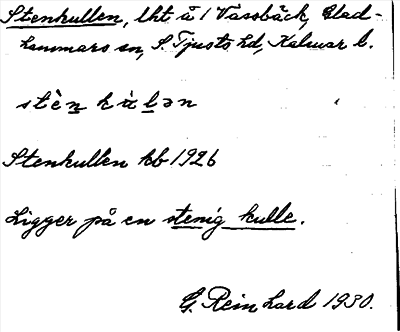 Stenkullen, lht å 1 Vassbäck, Glad-
hammars sn, S. Tjusts hd, Kalmar l.
stὲn kȁlən
Stenkullen kb 1926
Ligger på en stenig kulle.
G. Reinhard 1930.